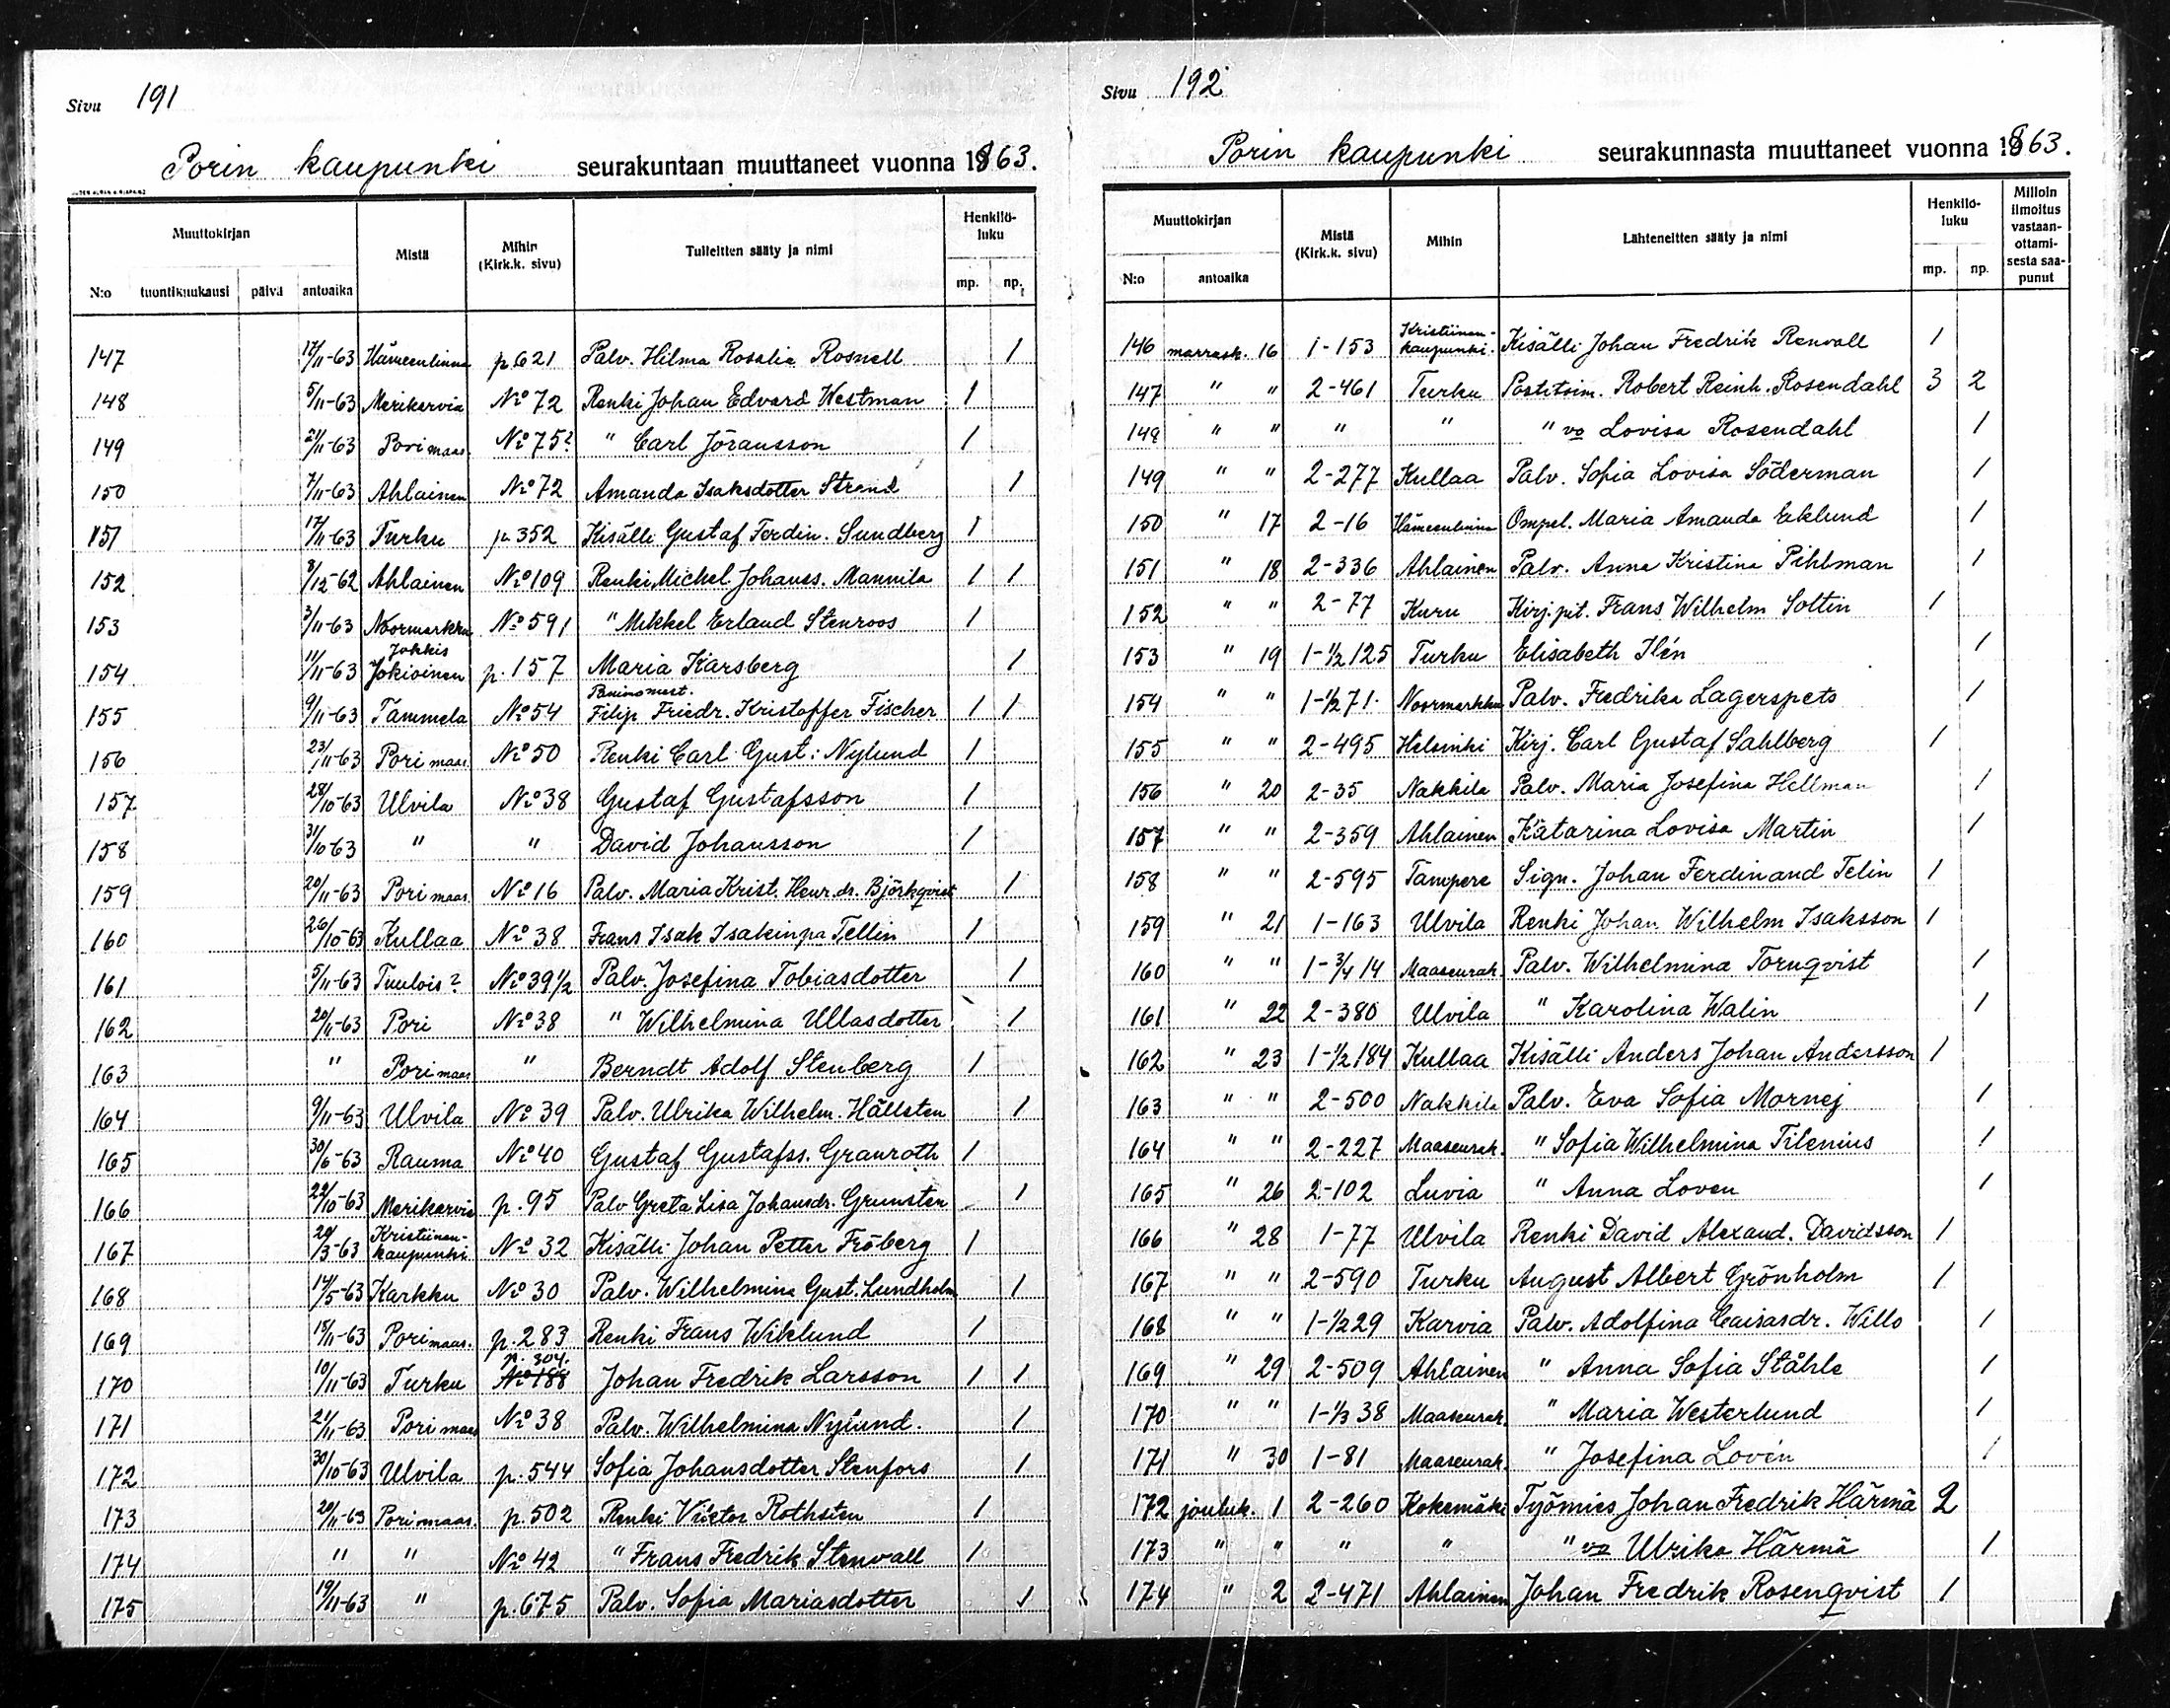 Sivu 191
Porin kaupunki seurakuntaan muuttaneet vuonna 1863.
Muuttokirjan Mistä Mihin (Kirk.k. sivu) Tulleitten sääty ja nimi Henkilö-luku
N:o tuontikuukausi päivä antoaika mp. np.
147 17/11-63 Hämeenlinna p.621 Palv. Hilma Rosalia Rosnell 1
148 5/11-63 Merikarvia No 72 Renki Johan Edvard Westman 1
149 21/11-63 Pori maas. No 75? " Carl Jöransson 1
150 7/11-63 Ahlainen No 72 Amanda Isaksdotter Strand 1
151 17/11-63 Turku p.352 Kisälli Gustaf Ferdin. Sundberg 1
152 8/12-62 Ahlainen No 109 Renki Michel Johans. Mannila 1 1
153 3/11-63 Noormarkku No 591 " Mikkel Erland Stenroos 1
154 11/11-63 Jokkis Jokioinen p.157 Maria Karsberg 1
155 9/11-63 Tammela No 54 Panimomest. Filip Friedr. Kristoffer Fischer 1 1
156 23/11-63 Pori maas. No 50 Renki Carl Gust: Nylund 1
157 28/10-63 Ulvila No 38 Gustaf Gustafsson 1
158 31/10-63 " " David Johansson 1
159 20/11-63 Pori maas. No 16 Palv. Maria Krist. Henr.dr. Björkqvist 1
160 26/10-63 Kullaa No 38 Frans Isak Isakinpa Tellin 1
161 5/11-63 Tuulois? No 39 1/2 Palv. Josefina Tobiasdotter 1
162 20/11-63 Pori No 38 " Wilhelmina Ullasdotter 1
163 " Pori maas " Berndt Adolf Stenberg 1
164 9/11-63 Ulvila No 39 Palv. Ulrika Wilhelm. Hällsten 1
165 30/6-63 Rauma No 40 Gustaf Gustafss. Granroth 1
166 22/10-63 Merikarvia p.95 Palv Greta Lisa Johansdr. Grunster 1
167 20/3-63 Kristiinan-kaupunki No 32 Kisälli Johan Petter Fröberg 1
168 14/5-63 Karkku No 30 Palv. Wilhelmina Gust. Lundholm 1
169 18/11-63 Pori maas. p.283 Renki Frans Wiklund 1
170 10/11-63 Turku p.304. No 188 Johan Fredrik Larsson 1 1
171 21/11-63 Pori maas No 38 Palv. Wilhelmina Nylund. 1
172 30/10-63 Ulvila p.544 Sofia Johansdotter Stenfors 1
173 20/11-63 Pori maas. p.502 Renki Victor Rothsten 1
174 " " No 42 " Frans Fredrik Stenvall 1
175 19/11-63 " p.675 Palv. Sofia Mariasdotter 1
Sivu 192
Porin kaupunki seurakunnasta muuttaneet vuonna 1863.
Muuttokirjan Mistä (Kirk.k. sivu) Mihin Lähteneitten sääty ja nimi Henkilö-luku Milloin ilmoitus vastaan-ottami-sesta saa-punut
N:o antoaika mp. np.
146 marrask. 16 1-153 Kristiinan-kaupunki. Kisälli Johan Fredrik Renvall 1
147 " " 2-461 Turku Postitoim. Robert Reinh. Rosendahl 3 2
148 " " " " " vo Lovisa Rosendahl 1
149 " " 2-277 Kullaa Palv. Sofia Lovisa Söderman 1
150 " 17 2-16 Hämeenlinna Ompel. Maria Amanda Eklund 1
151 " 18 2-336 Ahlainen Palv. Anna Kristina Pihlman 1
152 " " 2-77 Kuru Kirj.pit. Frans Wilhelm Soltin 1
153 " 19 1-1/2 125 Turku Elisabeth Ilén 1
154 " " 1-1/2 71. Noormarkku Palv. Fredrika Lagerspets 1
155 " " 2-495 Helsinki Kirj. Carl Gustaf Sahlberg 1
156 " 20 2-35 Nakkila Palv. Maria Josefina Hellman 1
157 " " 2-359 Ahlainen Katarina Lovisa Martin 1
158 " " 2-595 Tampere Sign. Johan Ferdinand Telin 1
159 " 21 1-163 Ulvila Renki Johan Wilhelm Isaksson 1
160 " " 1-3/4 14 Maaseurak. Palv. Wilhelmina Tornqvist 1
161 " 22 2-380 Ulvila " Karolina Walin 1
162 " 23 1-1/2 184 Kullaa Kisälli Anders Johan Andersson 1
163 " " 2-500 Nakkila Palv. Eva Sofia Mornej 1
164 " " 2-227 Maaseurak. " Sofia Wilhelmina Tilenius 1
165 " 26 2-102 Luvia " Anna Loven 1
166 " 28 1-77 Ulvila Renki David Alexand. Davidsson 1
167 " " 2-590 Turku August Albert Grönholm 1
168 " " 1-1/2 29 Karvia Palv. Adolfina Caisasdr. Willo 1
169 " 29 2-509 Ahlainen " Anna Sofia Ståhle 1
170 " " 1-1/3 38 Maaseurak. " Maria Westerlund 1
171 " 30 1-81 Maaseurak. " Josefina Lovén 1
172 jouluk. 1 2-260 Kokemäki Työmies Johan Fredrik Härmä 2
173 " " " " " vo Ulrika Härmä 1
174 " 2 2-471 Ahlainen Johan Fredrik Rosenqvist 1